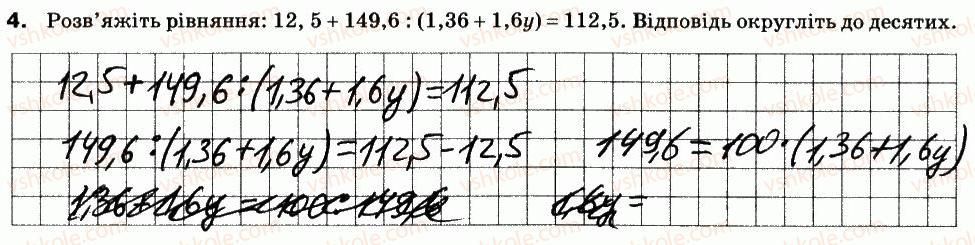 4. Розв'яжіть рівняння: 12, 5 + 149,6 : (1,36 + 1,6y) = 112,5. Відповідь округліть до десятих.
12,5 + 149,6 : (1,36 + 1,6y) = 112,5
149,6 : (1,36 + 1,6y) = 112,5 - 12,5
149,6 = 100 · (1,36 + 1,6y)